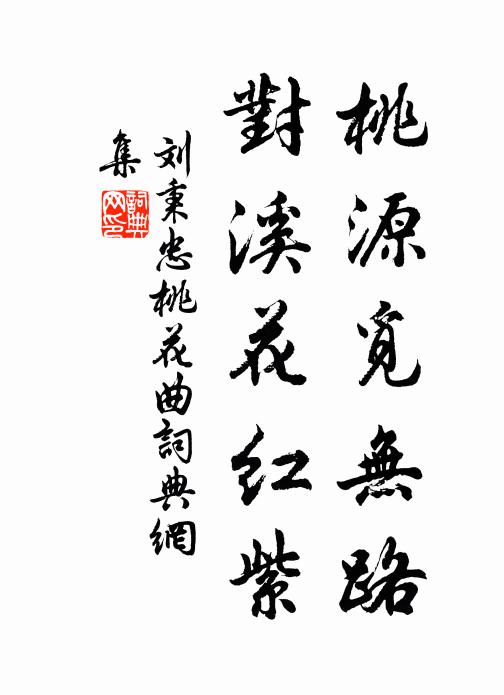 桃源覓無路
對溪花紅紫
刘秉忠桃花曲詞典網
集
詞典
网印